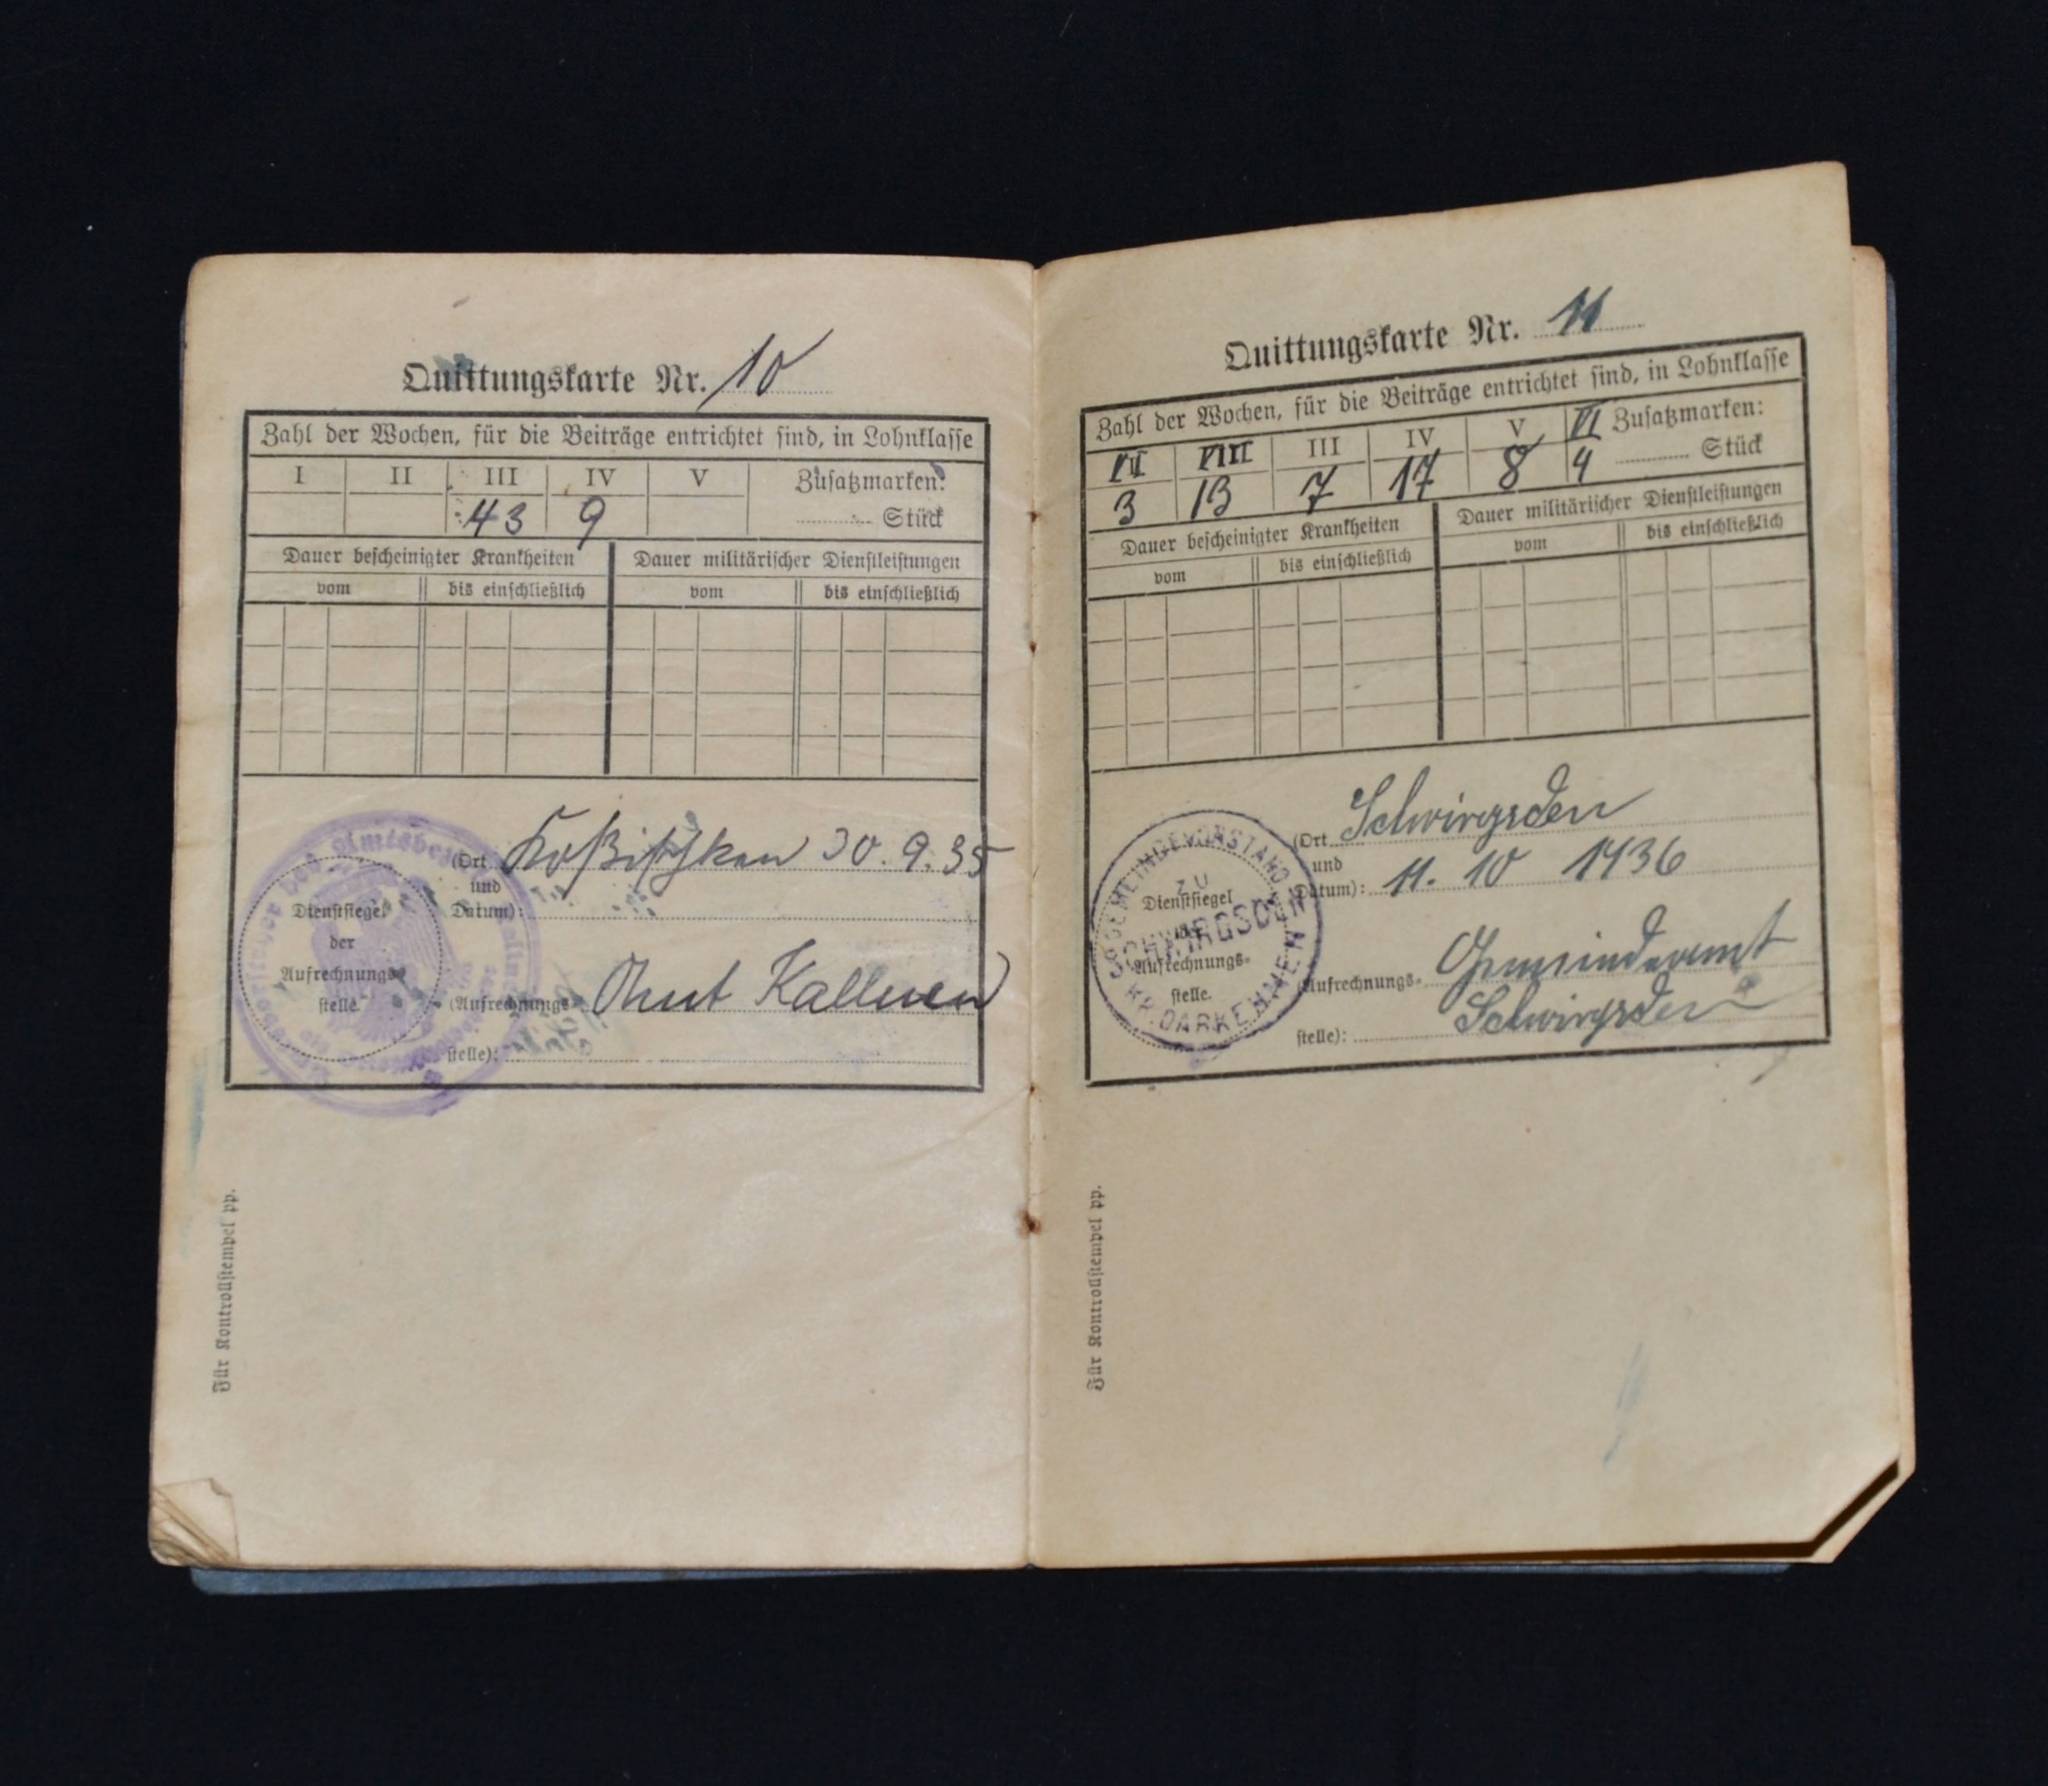 Quittungskarte Nr. 10
Zahl der Wochen, für die Beiträge entrichtet sind, in Lohnklasse
I II III IV V Zusatzmarken:
43 9 Stück
Dauer bescheinigter Krankheiten Dauer militärischer Dienstleistungen
vom bis einschließlich vom bis einschließlich
(Ort 30.9.35
und
Datum):
Dienstsiegel
der
Aufrechnungs-
stelle.
(Aufrechnungs- Kallnen
stelle):
Für Kontrollstempel pp.
Quittungskarte Nr. 11
Zahl der Wochen, für die Beiträge entrichtet sind, in Lohnklasse
VII VIII III IV V VI Zusatzmarken:
3 13 7 17 8 4 Stück
Dauer bescheinigter Krankheiten Dauer militärischer Dienstleistungen
vom bis einschließlich vom bis einschließlich
(Ort Schwirgsden
und
Datum): 11. 10 1936
Dienstsiegel
der
Aufrechnungs-
stelle.
ZU
SCHWIRGSDEN
KR. DARKEHMEN
(Aufrechnungs- Gemeindeamt
stelle): Schwirgsden
Für Kontrollstempel pp.